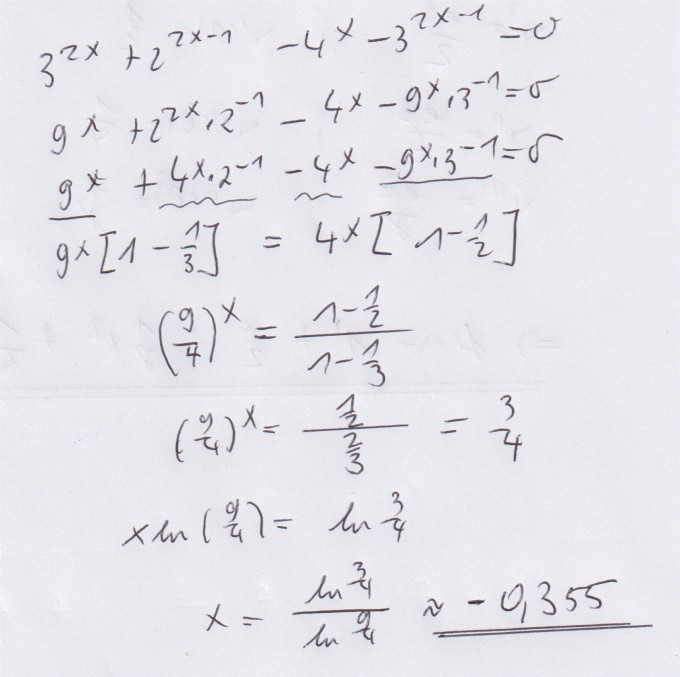 3^{2x} + 2^{2x-1} - 4^x - 3^{2x-1} = 0
9^x + 2^{2x} · 2^{-1} - 4^x - 9^x · 3^{-1} = 0
9^x + 4^x · 2^{-1} - 4^x - 9^x · 3^{-1} = 0
9^x [1 - 1/3] = 4^x [1 - 1/2]
(9/4)^x = (1 - 1/2)/(1 - 1/3)
(9/4)^x = (1/2)/(2/3) = 3/4
x ln (9/4) = ln 3/4
x = (ln 3/4)/(ln 9/4) ≈ -0,355